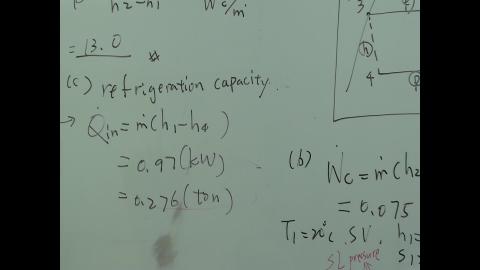 h₂-h₁ Ẇc/ṁ
= 13.0
(c) refrigeration capacity.
→ Q̇in = ṁ(h₁-h₄)
= 0.97(kW)
= 0.276(ton)
3
h
4
(b) Ẇc = ṁ(h₂
= 0.075
T₁=20°C . SV. h₁=
SL pressure S₁=